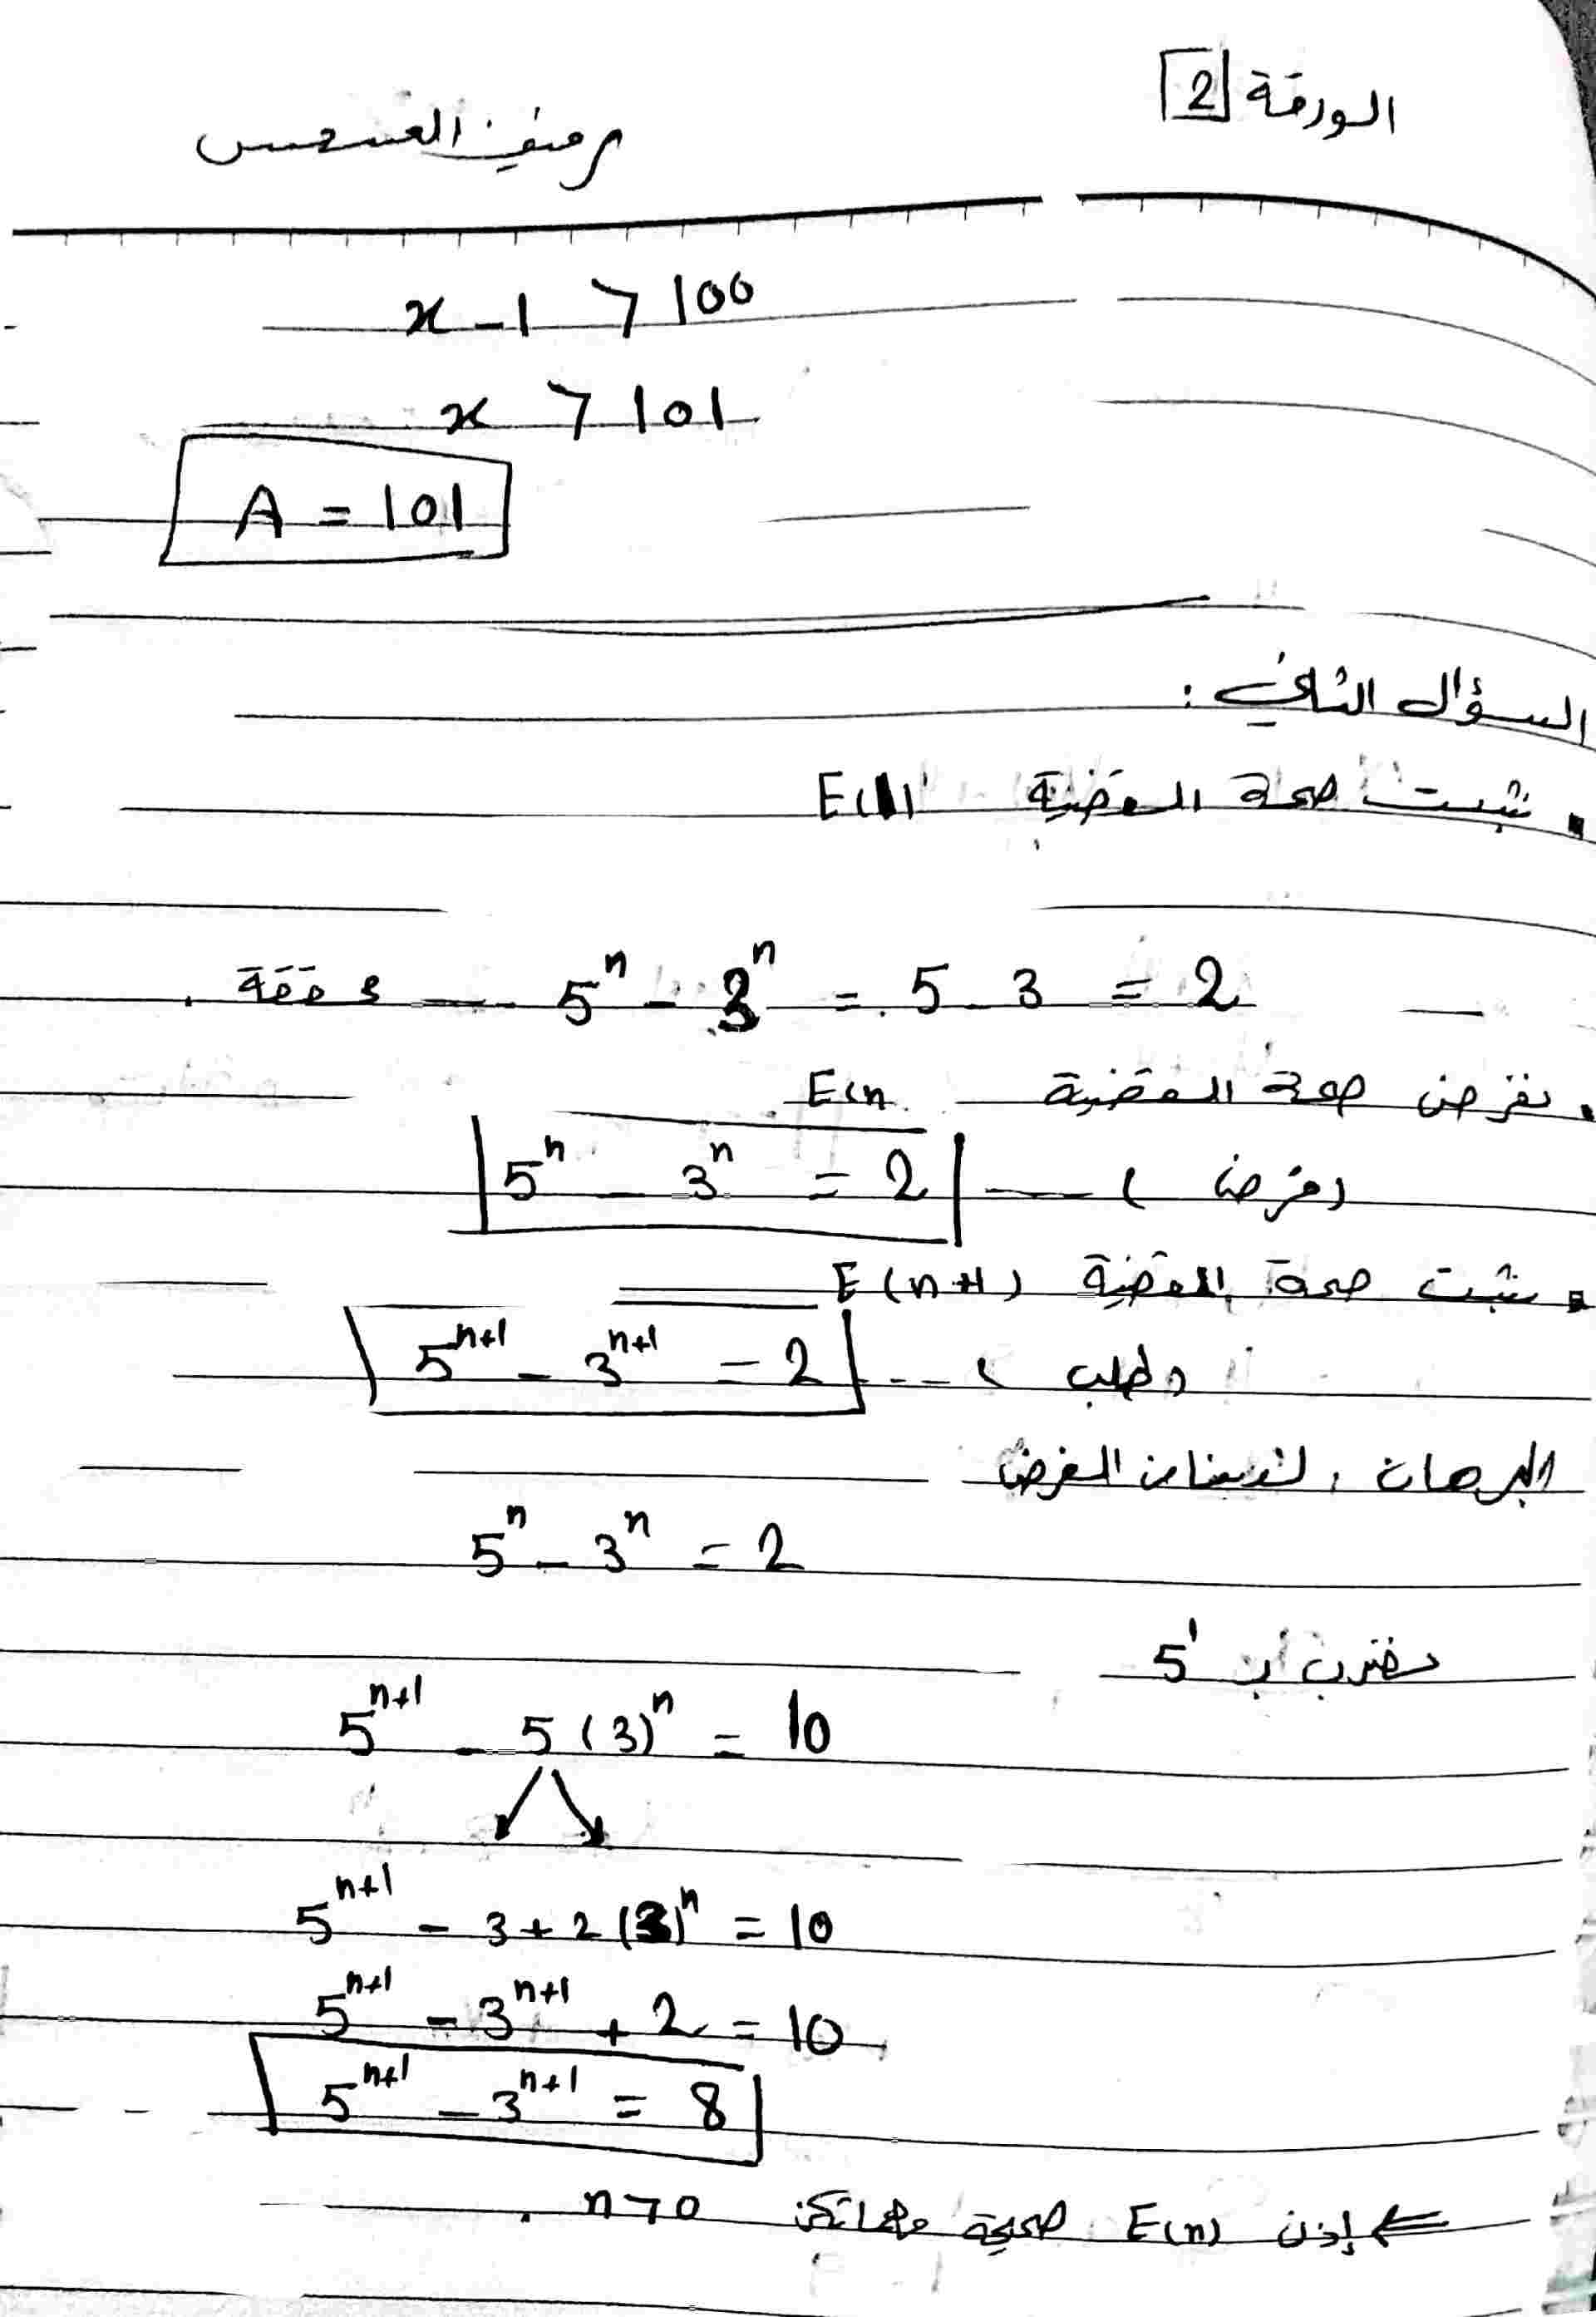 الورقة 2
x - 1 > 100
x > 101
A = 101
السؤال الثاني :
نثبت صحة القضية E(1)
5^n - 3^n = 5 - 3 = 2 — محققة .
نفرض صحة القضية E(n
(فرض) — 5^n - 3^n = 2
نثبت صحة القضية E(n+1)
(طلب) -- 5^{n+1} - 3^{n+1} = 2
البرهان : لدينا من الفرض
5^n - 3^n = 2
نضرب ب 5
5^{n+1} - 5(3)^n = 10
5^{n+1} - 3 + 2(3)^n = 10
5^{n+1} - 3^{n+1} + 2 = 10
5^{n+1} - 3^{n+1} = 8
⇐ إذن E(n) صحيحة مهما تكن n > 0 .